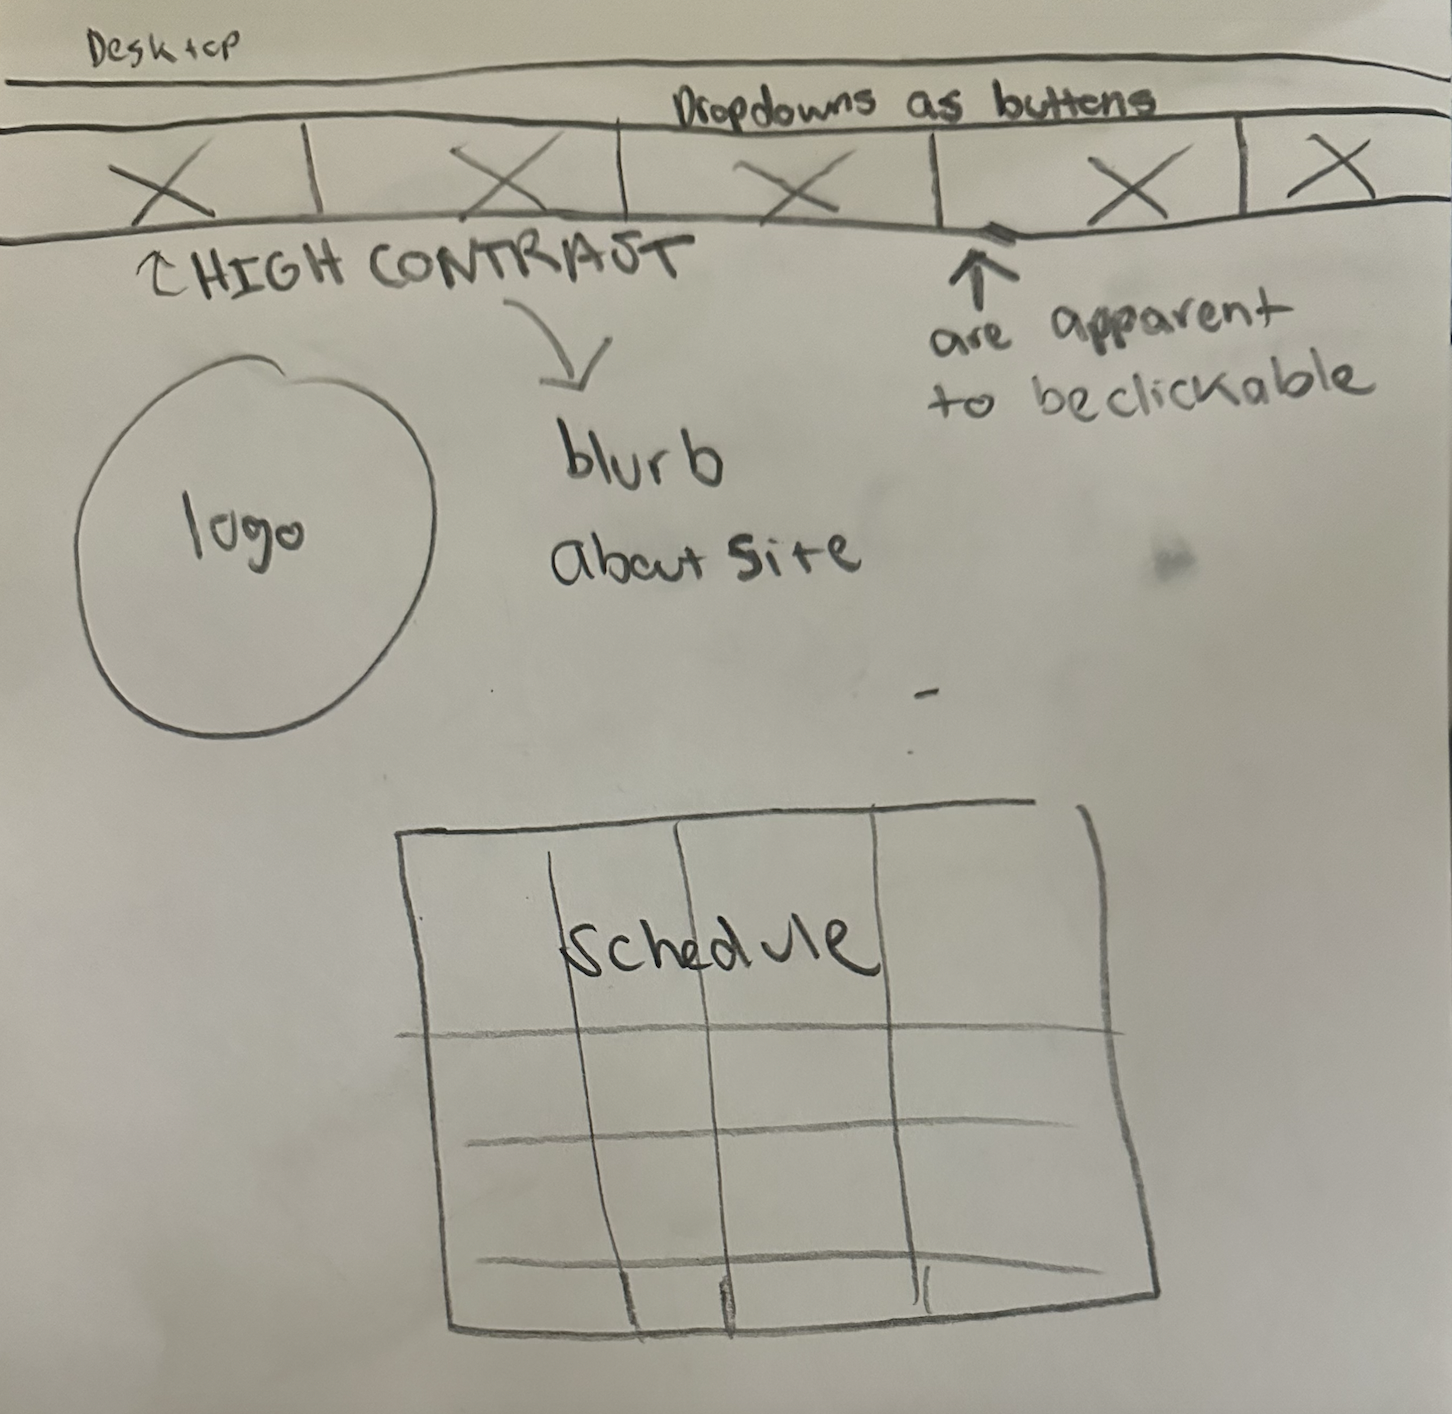 Desktop
Dropdowns as buttons
HIGH CONTRAST
are apparent
to be clickable
blurb
about site
logo
schedule